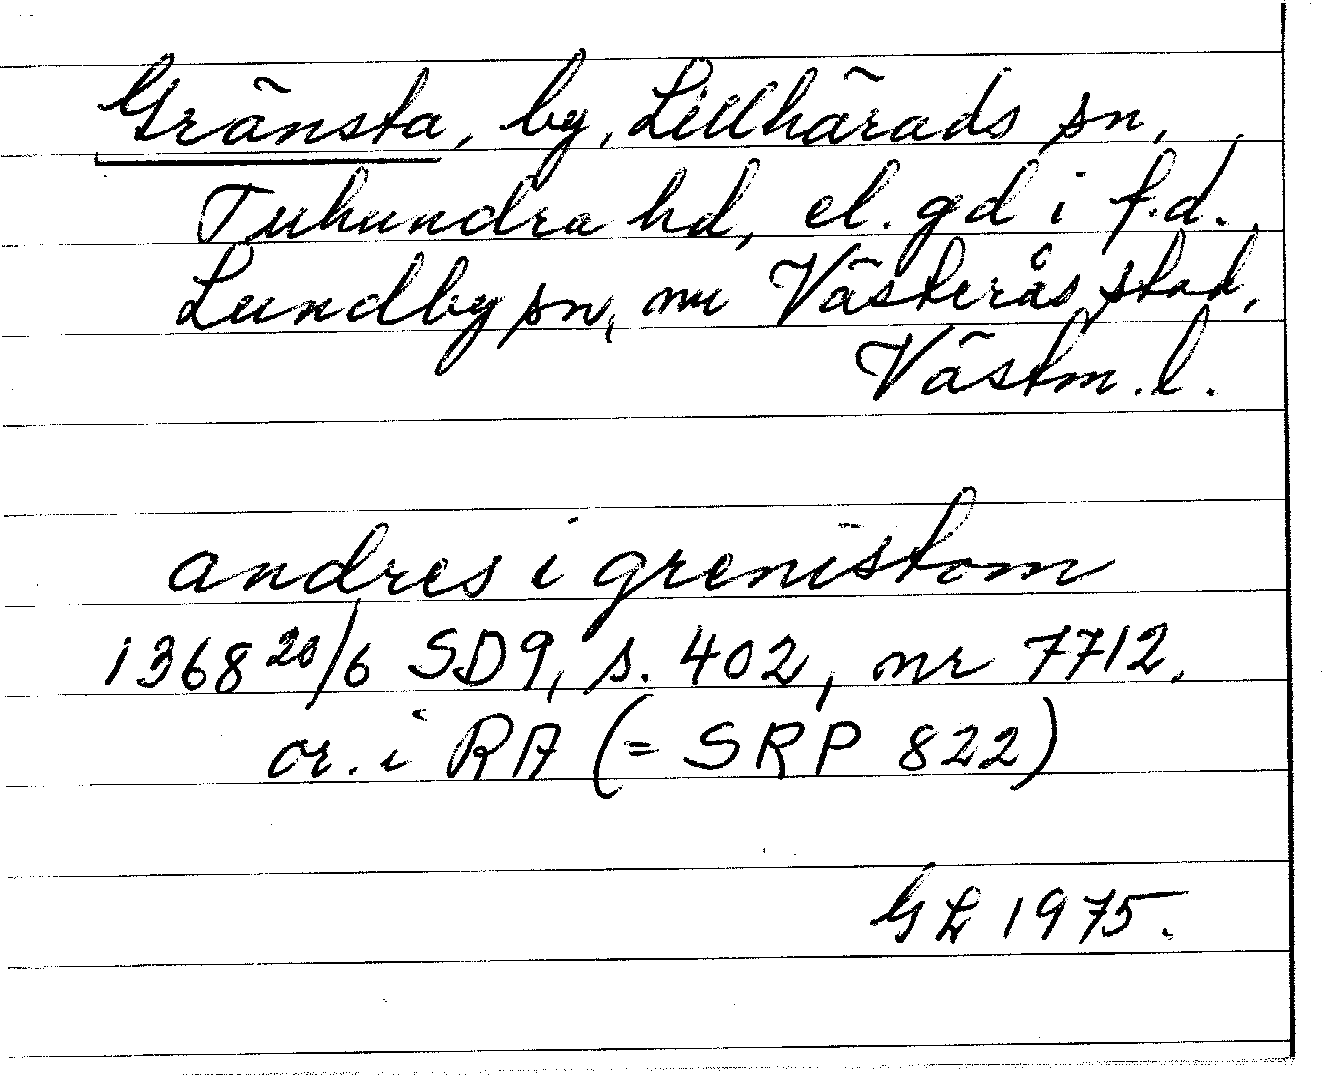 Gränsta, by, Lillhärads sn,
Tuhundra hd, el. gd i f.d.
Lundby sn, nu Västerås stad,
Västm. l.
andres i grenistom
1368 20/6 SD9, s. 402, nr 7712.
or. i RA (= SRP 822)
GL 1975.